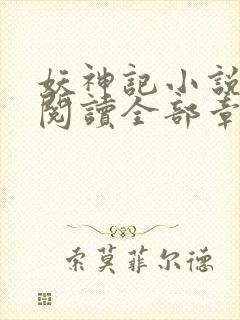 妖神記小說
閱讀全部章
索莫菲尔德